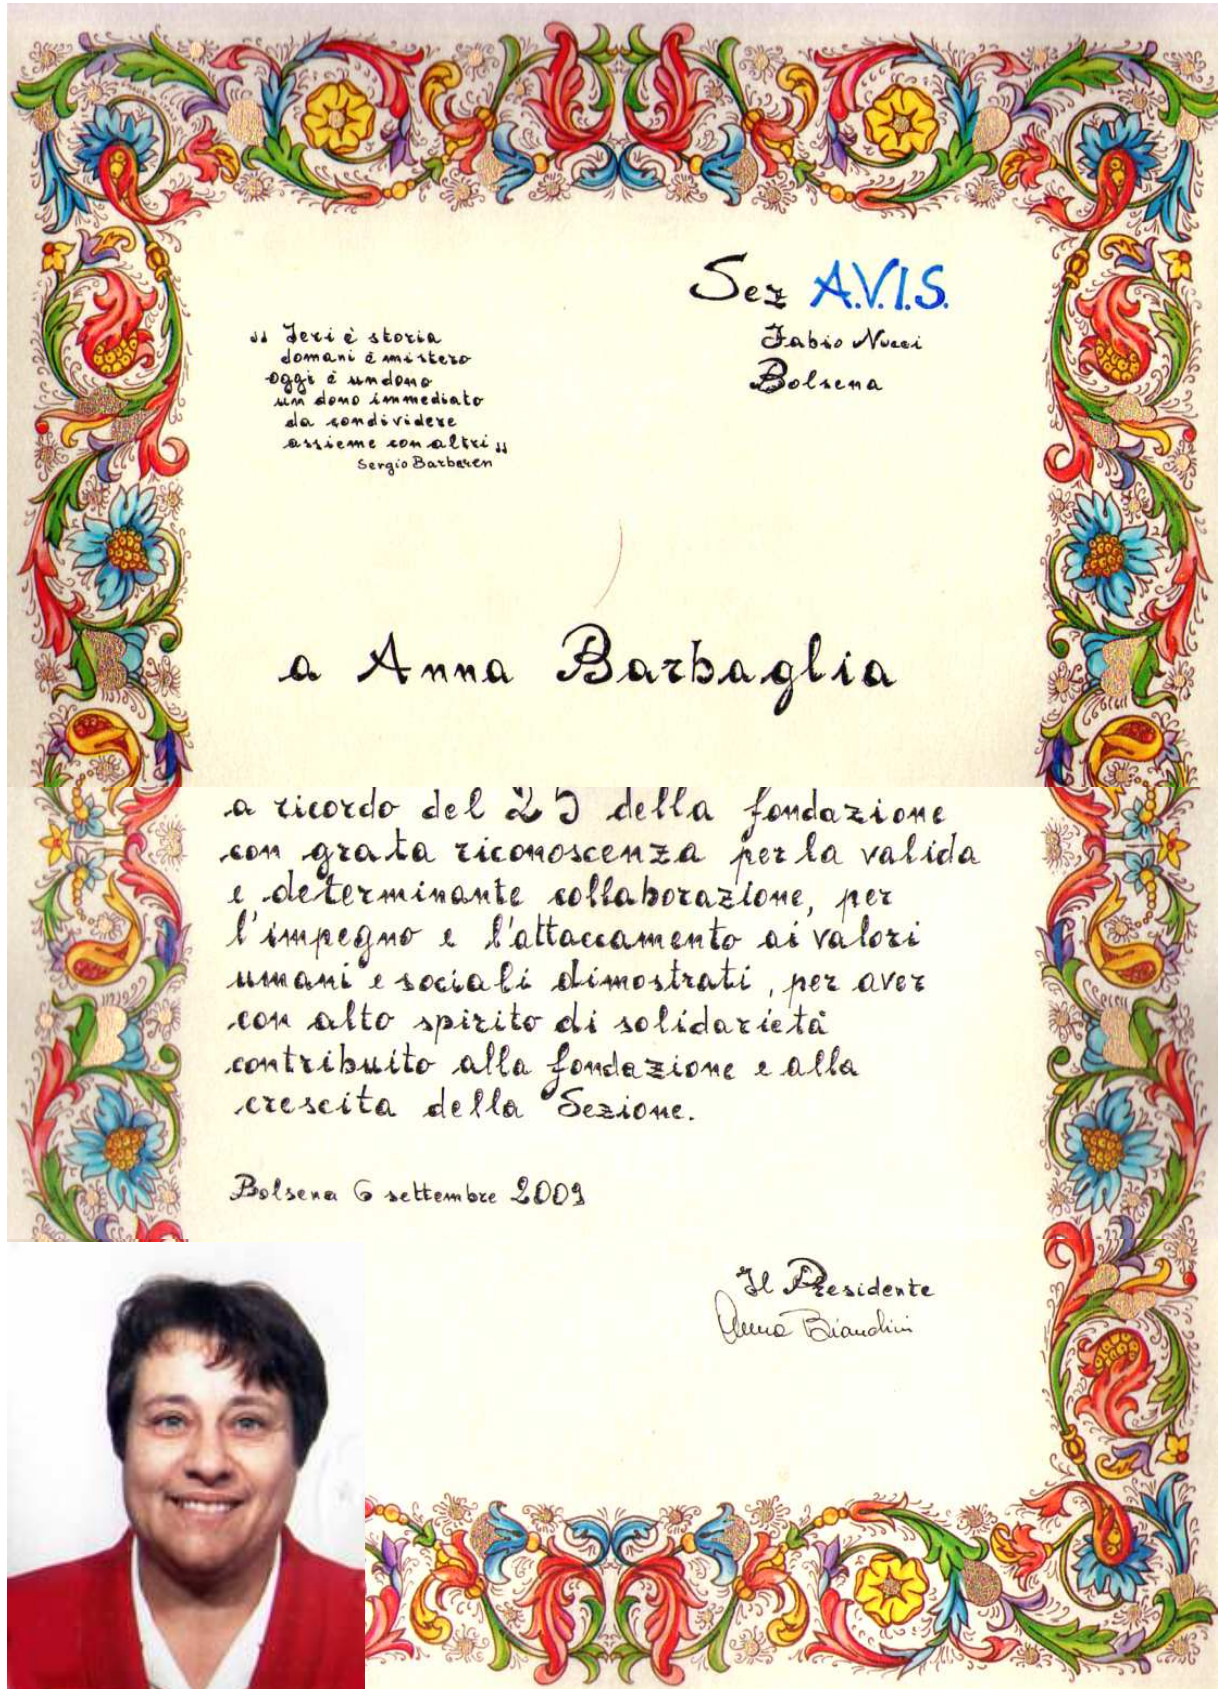 Sez A.V.I.S.
Fabio Nucci
Bolsena
„ Ieri è storia
domani è mistero
oggi è un dono
un dono immediato
da condividere
assieme con altri „
Sergio Barbaren
a Anna Barbaglia
a ricordo del 25 della fondazione
con grata riconoscenza per la valida
e determinante collaborazione, per
l'impegno e l'attaccamento ai valori
umani e sociali dimostrati, per aver
con alto spirito di solidarietà
contribuito alla fondazione e alla
crescita della Sezione.
Bolsena 6 settembre 2009
Il Presidente
Anna Bianchini